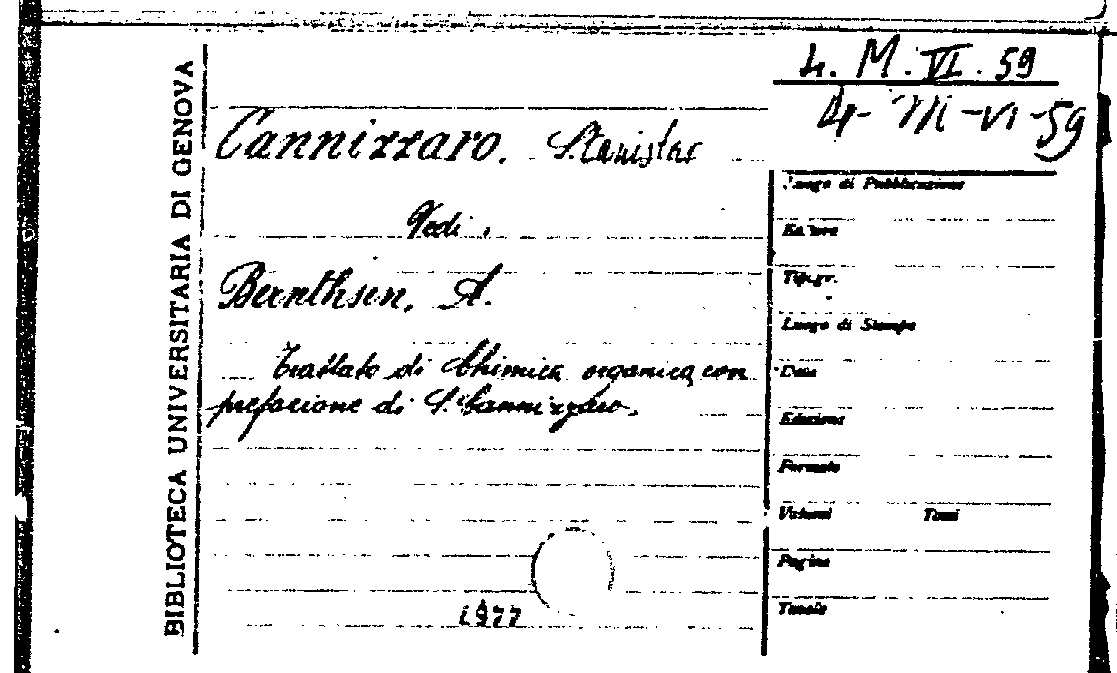 4. M. VI. 59
4- M-VI-59
BIBLIOTECA UNIVERSITARIA DI GENOVA
Cannizzaro, Stanislao
Vedi,
Bernthsen, A.
Trattato di Chimica organica con
prefazione di S. Cannizzaro.
1977
Luogo di Pubblicazione
Editore
Tipogr.
Luogo di Stampa
Data
Edizione
Formato
Volumi Tomi
Pagine
Tavole